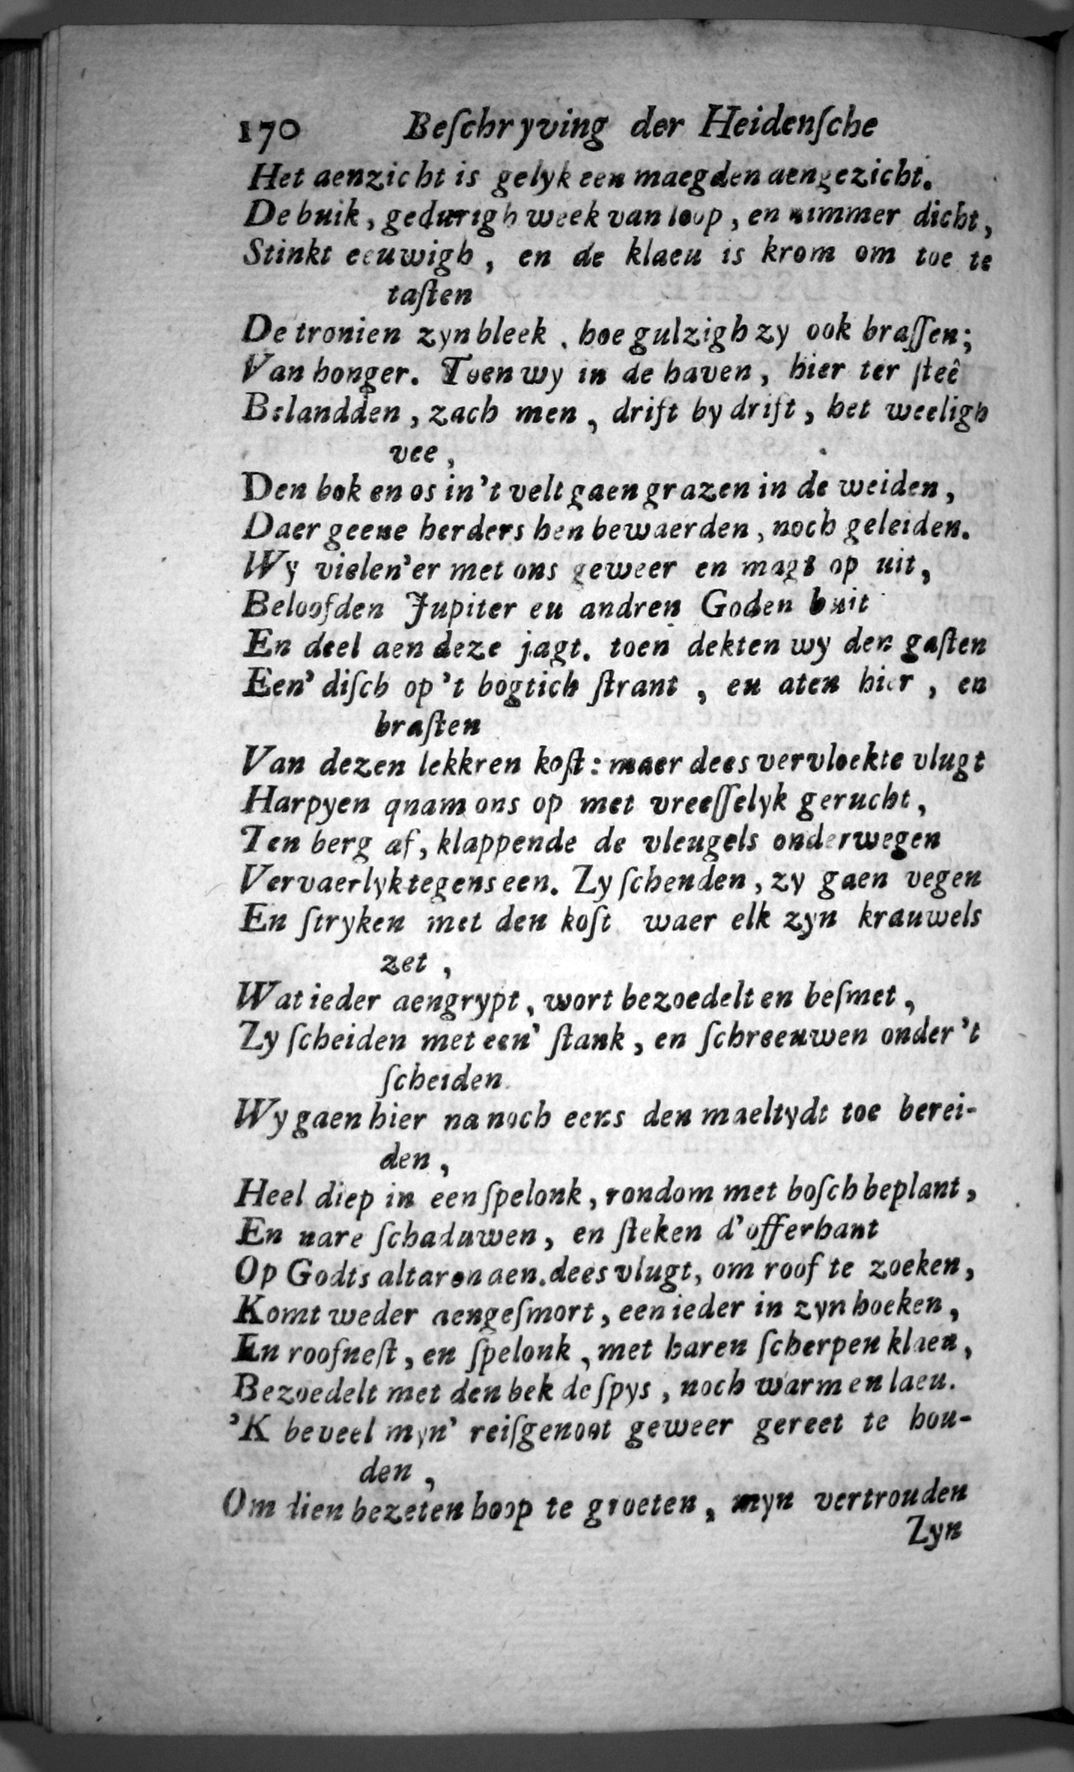 170 Beſchryving der Heidenſche
Het aenzicht is gelyk een maegden aengezicht.
De buik, gedurigh week van loop, en nimmer dicht,
Stinkt eeuwigh, en de klaeu is krom om toe te
taſten
De tronien zyn bleek, hoe gulzigh zy ook braſſen;
Van honger. Toen wy in de haven, hier ter ſteê
Belandden, zach men, drift by drift, het weeligh
vee,
Den bok en os in't velt gaen grazen in de weiden,
Daer geene herders hen bewaerden, noch geleiden.
Wy vielen'er met ons geweer en magt op uit,
Beloofden Jupiter eu andren Goden buit
En deel aen deze jagt. toen dekten wy den gaſten
Een' diſch op 't bogtich ſtrant, en aten hier, en
braſten
Van dezen lekkren koſt: maer dees vervloekte vlugt
Harpyen qnam ons op met vreeſſelyk gerucht,
Ten berg af, klappende de vleugels onderwegen
Vervaerlyk tegens een. Zy ſchenden, zy gaen vegen
En ſtryken met den koſt waer elk zyn krauwels
zet,
Wat ieder aengrypt, wort bezoedelt en beſmet,
Zy ſcheiden met een' ſtank, en ſchreeuwen onder 't
ſcheiden
Wy gaen hier na noch eens den maeltydt toe berei-
den,
Heel diep in een ſpelonk, rondom met boſch beplant,
En nare ſchaduwen, en ſteken d'offerhant
Op Godts altaren aen. dees vlugt, om roof te zoeken,
Komt weder aengeſmort, een ieder in zyn hoeken,
En roofneſt, en ſpelonk, met haren ſcherpen klaen,
Bezoedelt met den bek de ſpys, noch warm en laeu.
'K beveel myn' reiſgenoot geweer gereet te hou-
den,
Om dien bezeten hoop te groeten, myn vertrouden
Zyn